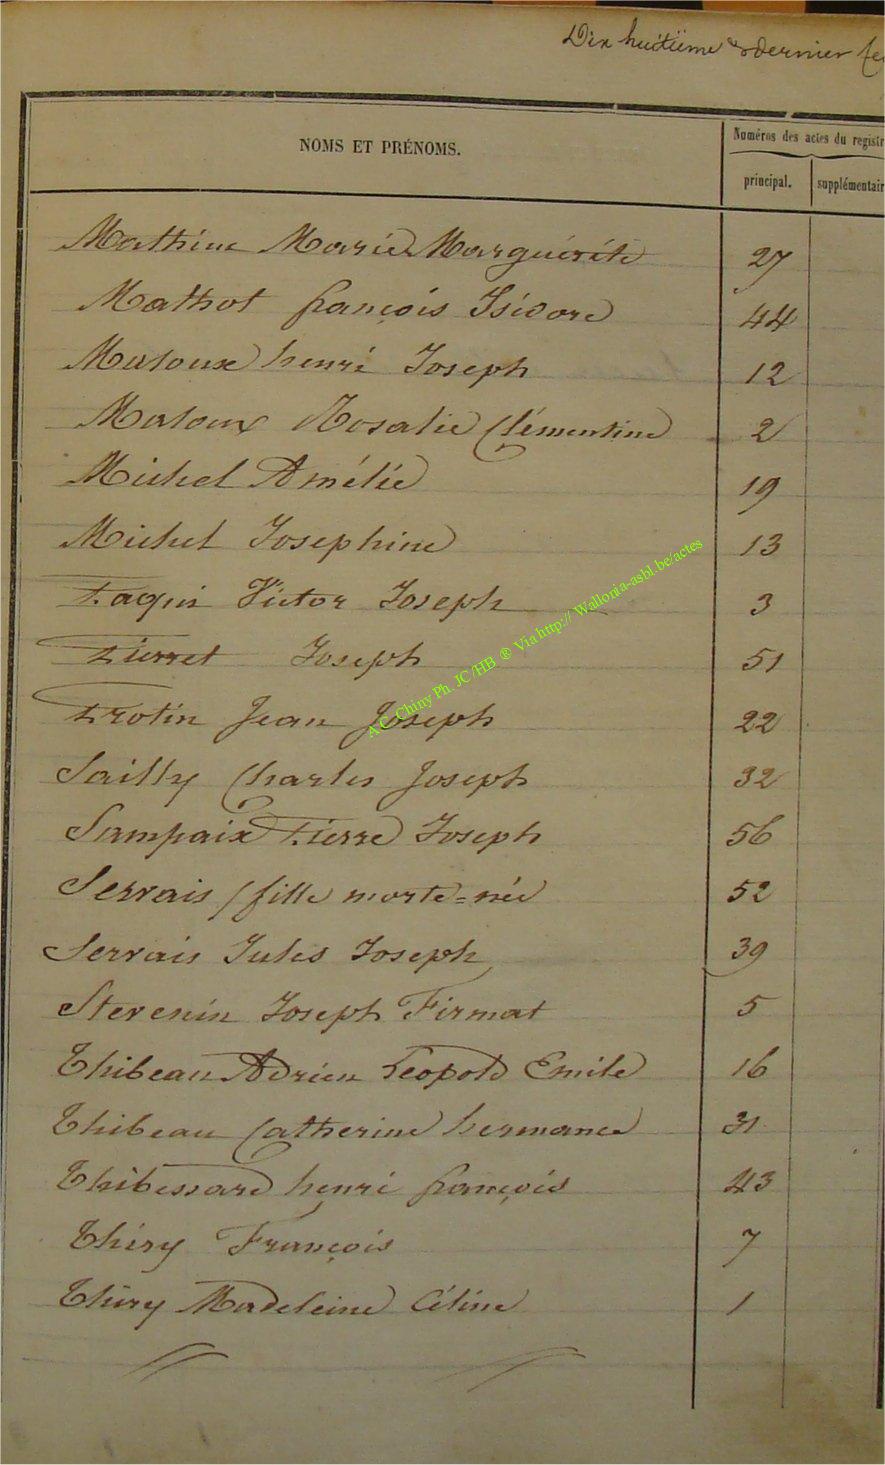 Dix huitième et dernier
NOMS ET PRÉNOMS.
Numéros des actes du registr
principal.
supplémentair
Mathieu Marie Marguérite 27
Mathot françois Isidore 44
Maloux henri Joseph 12
Maloux Rosalie Clémentine 2
Michel Amélie 19
Michel Josephine 13
Paquis Victor Joseph 3
Pierret Joseph 51
Protin Jean Joseph 22
Sailly Charles Joseph 32
Sampaix Pierre Joseph 56
Servais / fille morte=née 52
Servais Jules Joseph 39
Stevenin Joseph Firmat 5
Thibeau Adrien Léopold Emile 16
Thibeau Catherine hermance 31
Thibessard henri françois 43
Thiry François 7
Thiry Madeleine Céline 1
A.C. Chiny Ph. JC/HB ® Via http:// Wallonia-asbl.be/actes